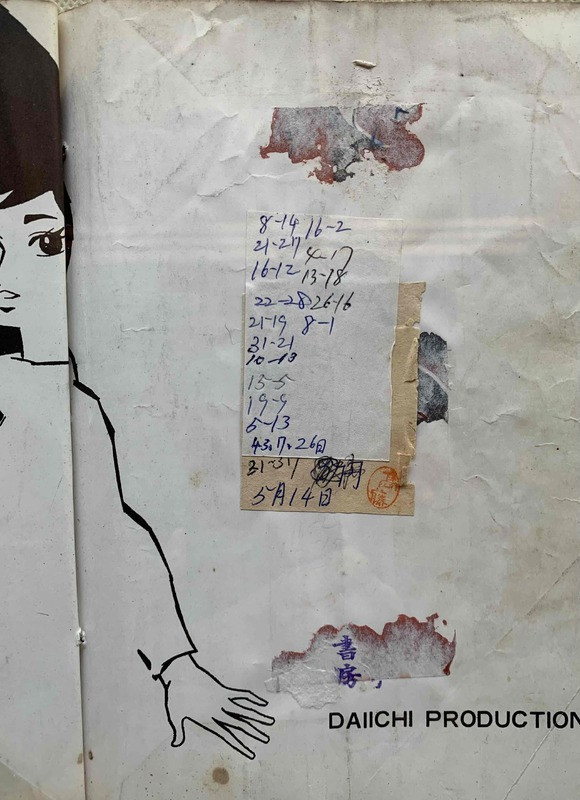 8-14 16-2
21-27 4-17
16-12 13-18
22-28 26-16
21-19 8-1
31-21
10-13
15-5
19-9
5-13
43.7.26日
31-31
5月14日
書房
DAIICHI PRODUCTION